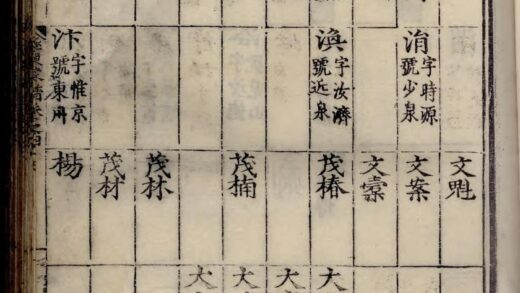 涓 字時源 號少泉
渙 字汝濟 號近泉
汴 字惟京 號東
文
文案
文
茂椿
茂楠
茂林
茂材
楊
大
大
大
大